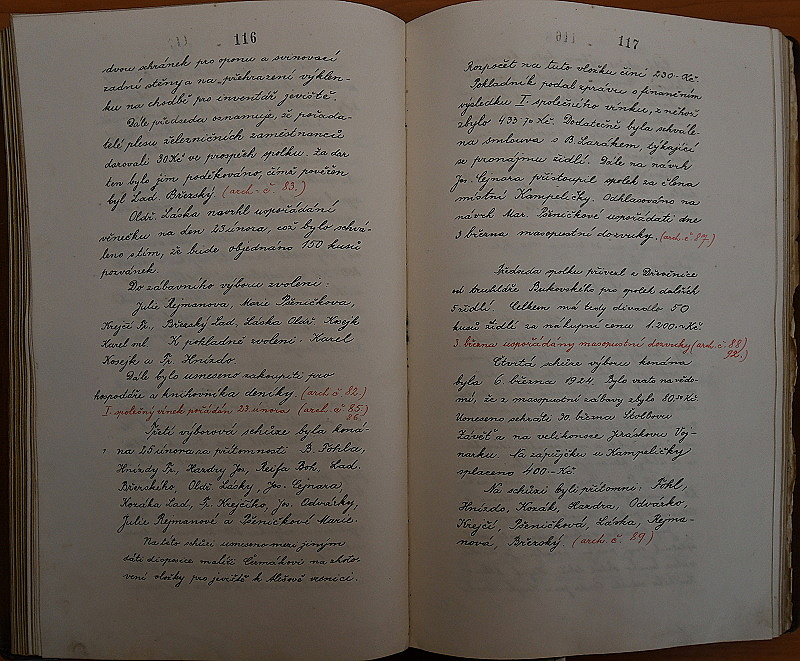 116
dvou schránek pro oponu a svinovací
zadní stěny a na přehrazení výklen-
ku na chodbě pro inventář jeviště.
Dále předseda oznamuje, že pořada-
telé plesu železničních zaměstnanců
darovali 30 Kč ve prospěch spolku. Za dar
ten bylo jim poděkováno, čímž pověřen
byl Lad. Břežský (arch. č. 83.)
Oldř. Láska navrhl uspořádání
věnečku na den 23 února, což bylo schvá-
leno s tím, že bude objednáno 150 kusů
pozvánek.
Do zábavního výboru zvoleni:
Julie Rejmanova, Marie Pšeničkova,
Krejčí Fr., Břežský Lad, Láska Oldř. Kosejk
Karel ml. K pokladně zvoleni: Karel
Kosejk a Fr. Hnízdo.
Dále bylo usneseno zakoupiti pro
hospodáře a knihovníka deníky. (arch. č. 82.)
I. společný vínek pořádán 23. února (arch. č. 85.)
86.
Třetí výborová schůze byla koná-
na 25 února za přítomnosti B. Pohla,
Hnízdy Fr., Hardry Jos, Reifa Boh, Lad.
Břežského, Oldř. Lásky, Jos. Cejnara
Kozáka Lad, Fr. Krejčího, Jos. Odvárky,
Julie Rejmanové a Pšeničkové Marie.
Na této schůzi usneseno mezi jiným
dáti dispozice malíři Čermákovi na zhoto-
vení vložky pro jeviště k Alešově vesnici.
117
Rozpočet na tuto vložku činí 230 - Kč.
Pokladník podal zprávu o finančním
výsledku I. společného vínku, z něhož
zbylo 433·70 Kč. Dodatečně byla schvále-
na smlouva s B. Larákem, týkající
se pronájmu židlí. Dále na návrh
Jos. Cejnara přistoupil spolek za člena
místní Kampeličky. Odhlasováno na
návrh Mar. Pšeničkové uspořádati dne
3 března masopustní dozvuky. (arch. č. 87)
Předseda spolku přivezl z
od truhláře Bukovského pro spolek dalších
5 židlí. Celkem má tedy divadlo 50
kusů židlí za nákupní cenu 1.200 - Kč
3 března uspořádány masopustní dozvuky (arch. č. 88)
92.)
Čtvrtá schůze výboru konána
byla 6. března 1924. Bylo vzato na vědo-
mí, že z masopustní zábavy zbylo 80.30 Kč.
Usneseno sehráti 30. března Štolbovu
Závěť a na velikonoce Jiráskovu Voj-
narku. Na zápůjčku u Kampeličky
splaceno 400 - Kč
Na schůzi byli přítomni: Pohl,
Hnízdo, Kozák, Hardra, Odvárko,
Krejčí, Pšeničková, Láska, Rejma-
nová, Břežský. (arch. č. 89)